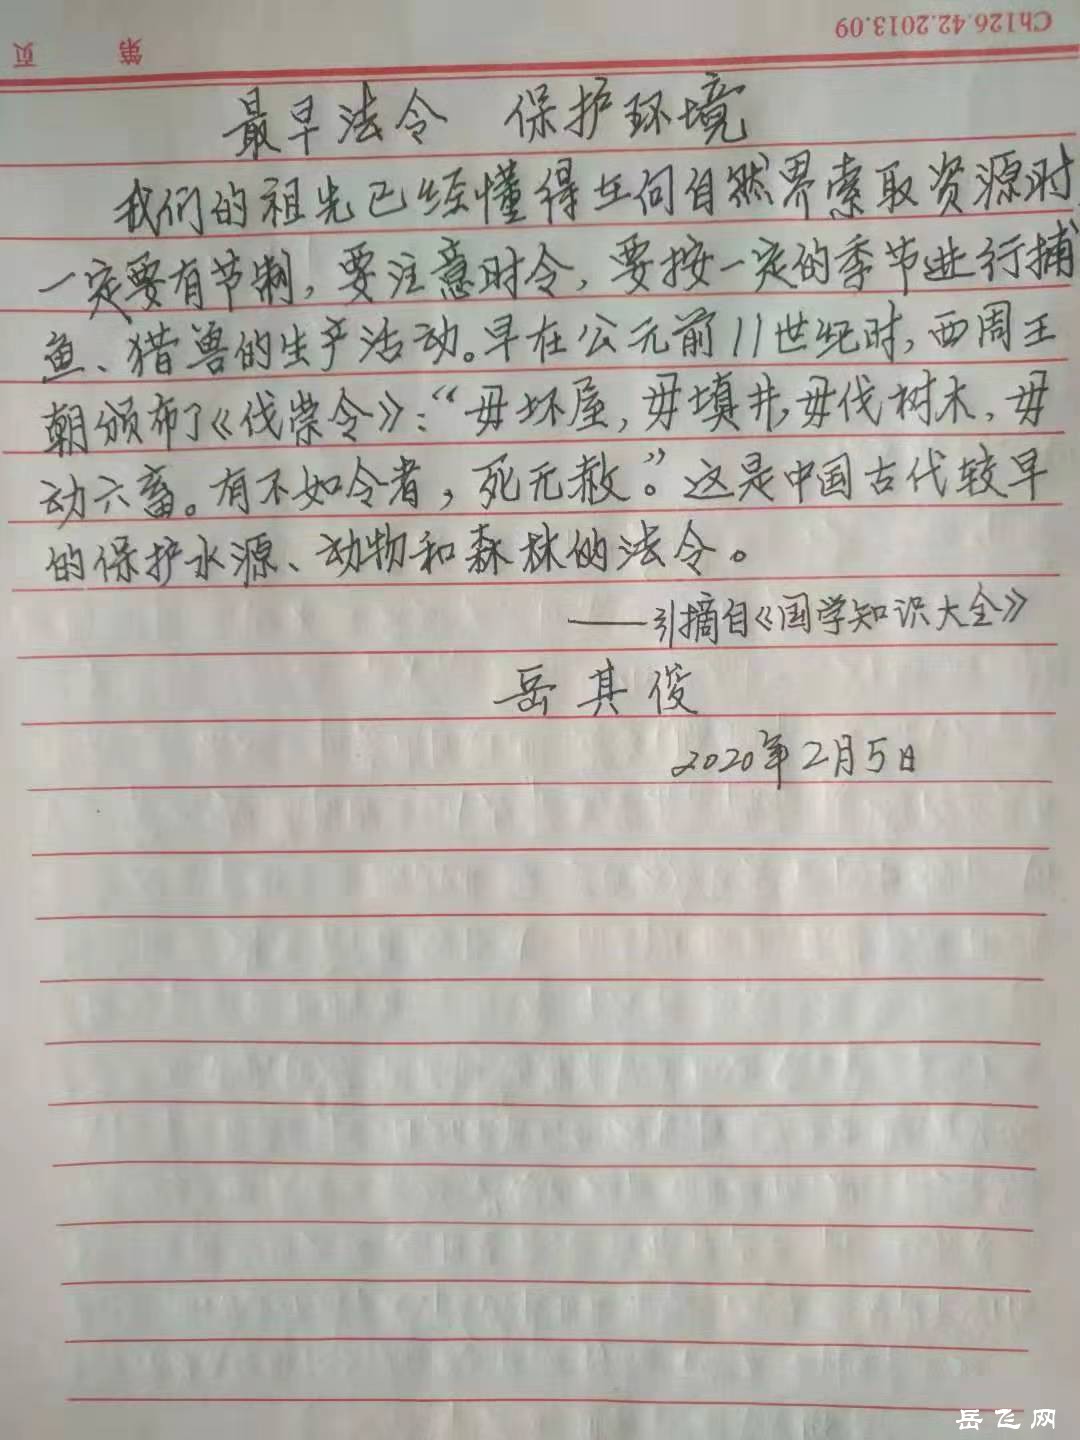 Ch126.42.2013.09
第 页
最早法令 保护环境
我们的祖先已经懂得在向自然界索取资源时,
一定要有节制,要注意时令,要按一定的季节进行捕
鱼、猎兽的生产活动。早在公元前11世纪时,西周王
朝颁布了《伐崇令》:“毋坏屋,毋填井,毋伐树木,毋
动六畜。有不如令者,死无赦。”这是中国古代较早
的保护水源、动物和森林的法令。
——引摘自《国学知识大全》
岳其俊
2020年2月5日
岳飞网